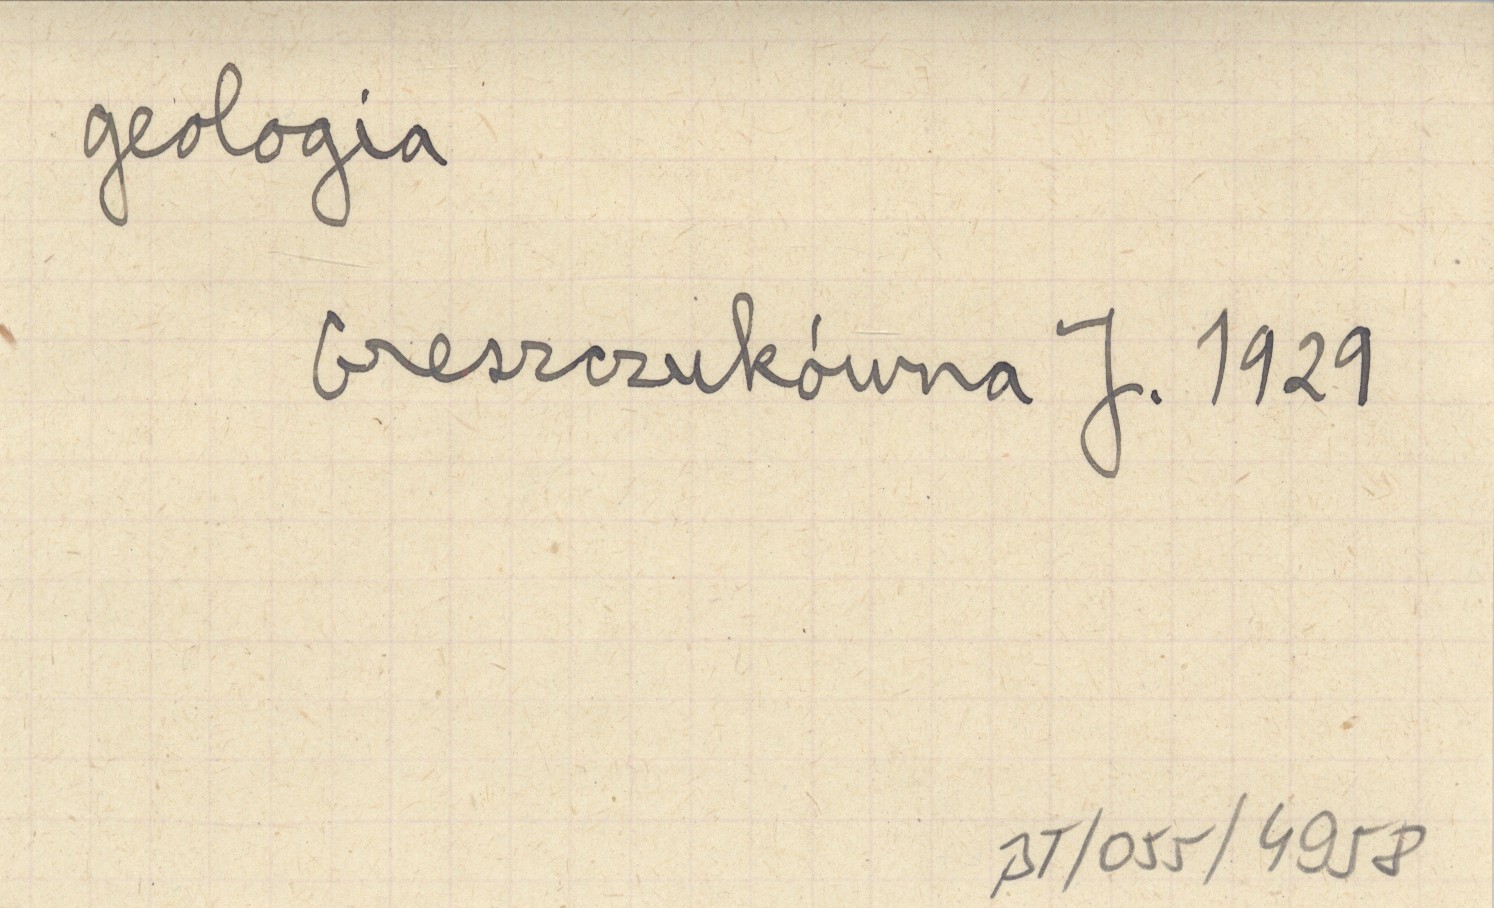 geologia
Greszczukówna J. 1929
BT/055/4958